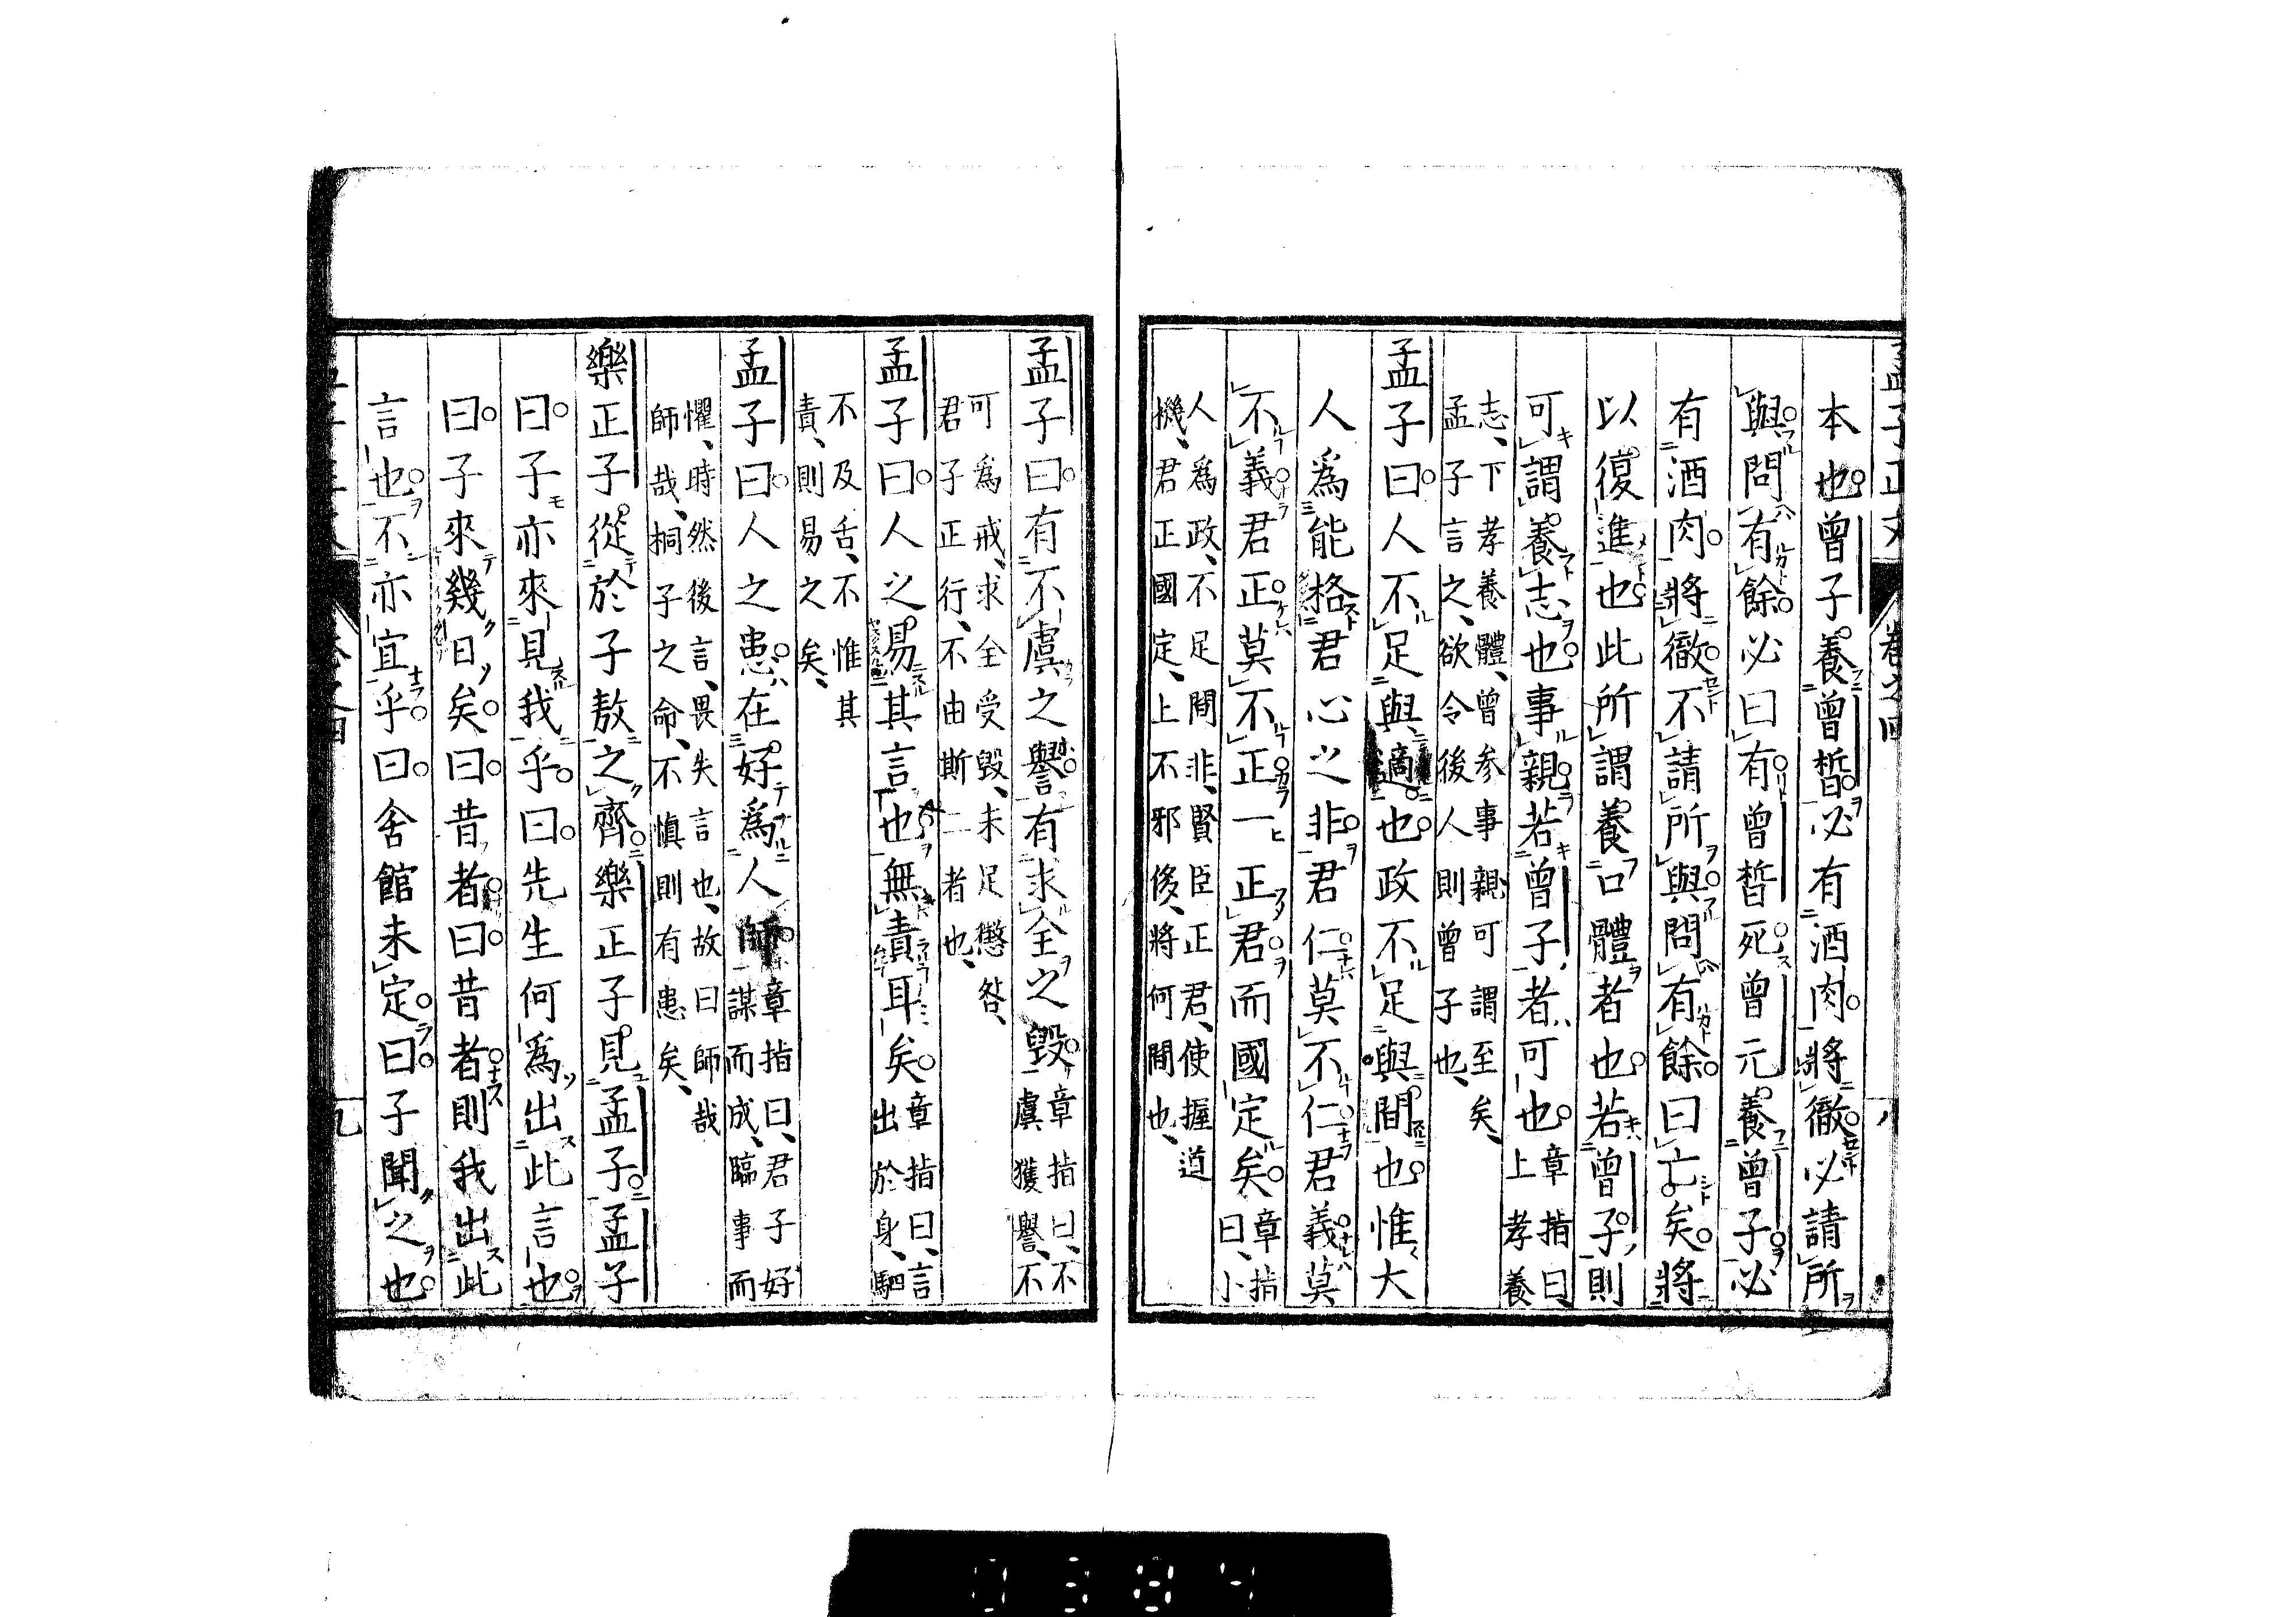 孟子正文 卷之四 八
本也曾子養曾晳必有酒肉將徹必請所
與問有餘必曰有曾晳死曾元養曾子必
有酒肉將徹不請所與問有餘曰亡矣將
以復進也此所謂養口體者也若曾子則
可謂養志也事親若曾子者可也章指曰、
上孝養
志、下孝養體、曾參事親可謂至矣、
孟子言之、欲令後人則曾子也、
孟子曰人不足與適也政不足與間也惟大
人爲能格君心之非君仁莫不仁君義莫
不義君正莫不正一正君而國定矣章指
曰、小
人爲政、不足間非、賢臣正君、使握道
機、君正國定、上不邪侈、將何間也、
孟子曰有不虞之譽有求全之毀章指曰、不
虞獲譽、不
可爲戒、求全受毀、未足懲咎、
君子正行、不由斯二者也、
孟子曰人之易其言也無責耳矣章指曰、言
出於身、駟
不及舌、不惟其
責、則易之矣、
孟子曰人之患在好爲人師章指曰、君子好
謀而成、臨事而
懼、時然後言、畏失言也、故曰師哉
師哉、桐子之命、不愼則有患矣、
樂正子從於子敖之齊樂正子見孟子孟子
曰子亦來見我乎曰先生何爲出此言也
曰子來幾日矣曰昔者曰昔者則我出此
言也不亦宜乎曰舍館未定曰子聞之也
九
0384